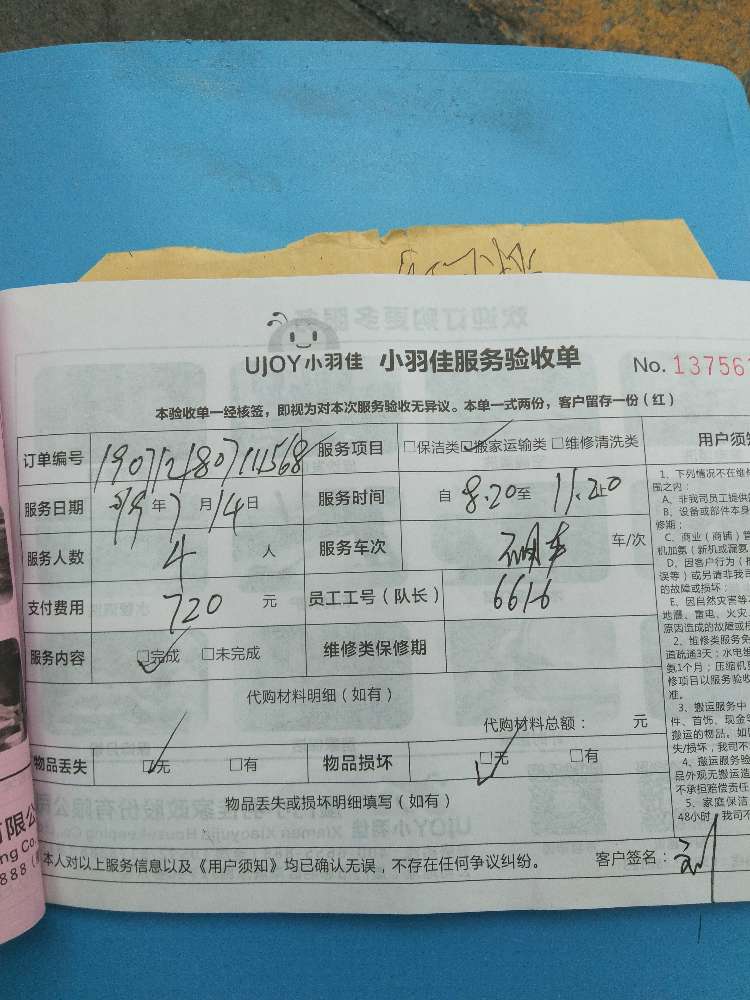 UJOY小羽佳 小羽佳服务验收单 No. 13756
本验收单一经核签，即视为对本次服务验收无异议。本单一式两份，客户留存一份（红）
订单编号 190712180711568 服务项目 □保洁类 □搬家运输类 □维修清洗类 用户须知
服务日期 19 年 7 月 14 日 服务时间 自 8:20 至 11:20
服务人数 4 人 服务车次 车/次
支付费用 720 元 员工工号（队长） 6616
服务内容 □完成 □未完成 维修类保修期
代购材料明细（如有）
代购材料总额： 元
物品丢失 □无 □有 物品损坏 □无 □有
物品丢失或损坏明细填写（如有）
本人对以上服务信息以及《用户须知》均已确认无误，不存在任何争议纠纷。 客户签名：
1、下列情况不在维
围之内：
A、非我司员工提供
B、设备或部件本身
修期；
C、商业（商铺）管
机加氨（新机或漏氨
D、因客户行为（
误等）或另请非我司
的故障或损坏；
E、因自然灾害等
地震、雷电、火灾、
原因造成的故障或
2、维修类服务免
道疏通3天；水电维
氨1个月；压缩机
修项目以服务验收
准。
3、搬运服务中
件、首饰、现金等
搬运的物品。如
失/损坏，我司不
4、搬运服务验
品外观无搬运造
不承担赔偿责任
5、家庭保洁
48小时，我司不
有限公
ng Co.
888